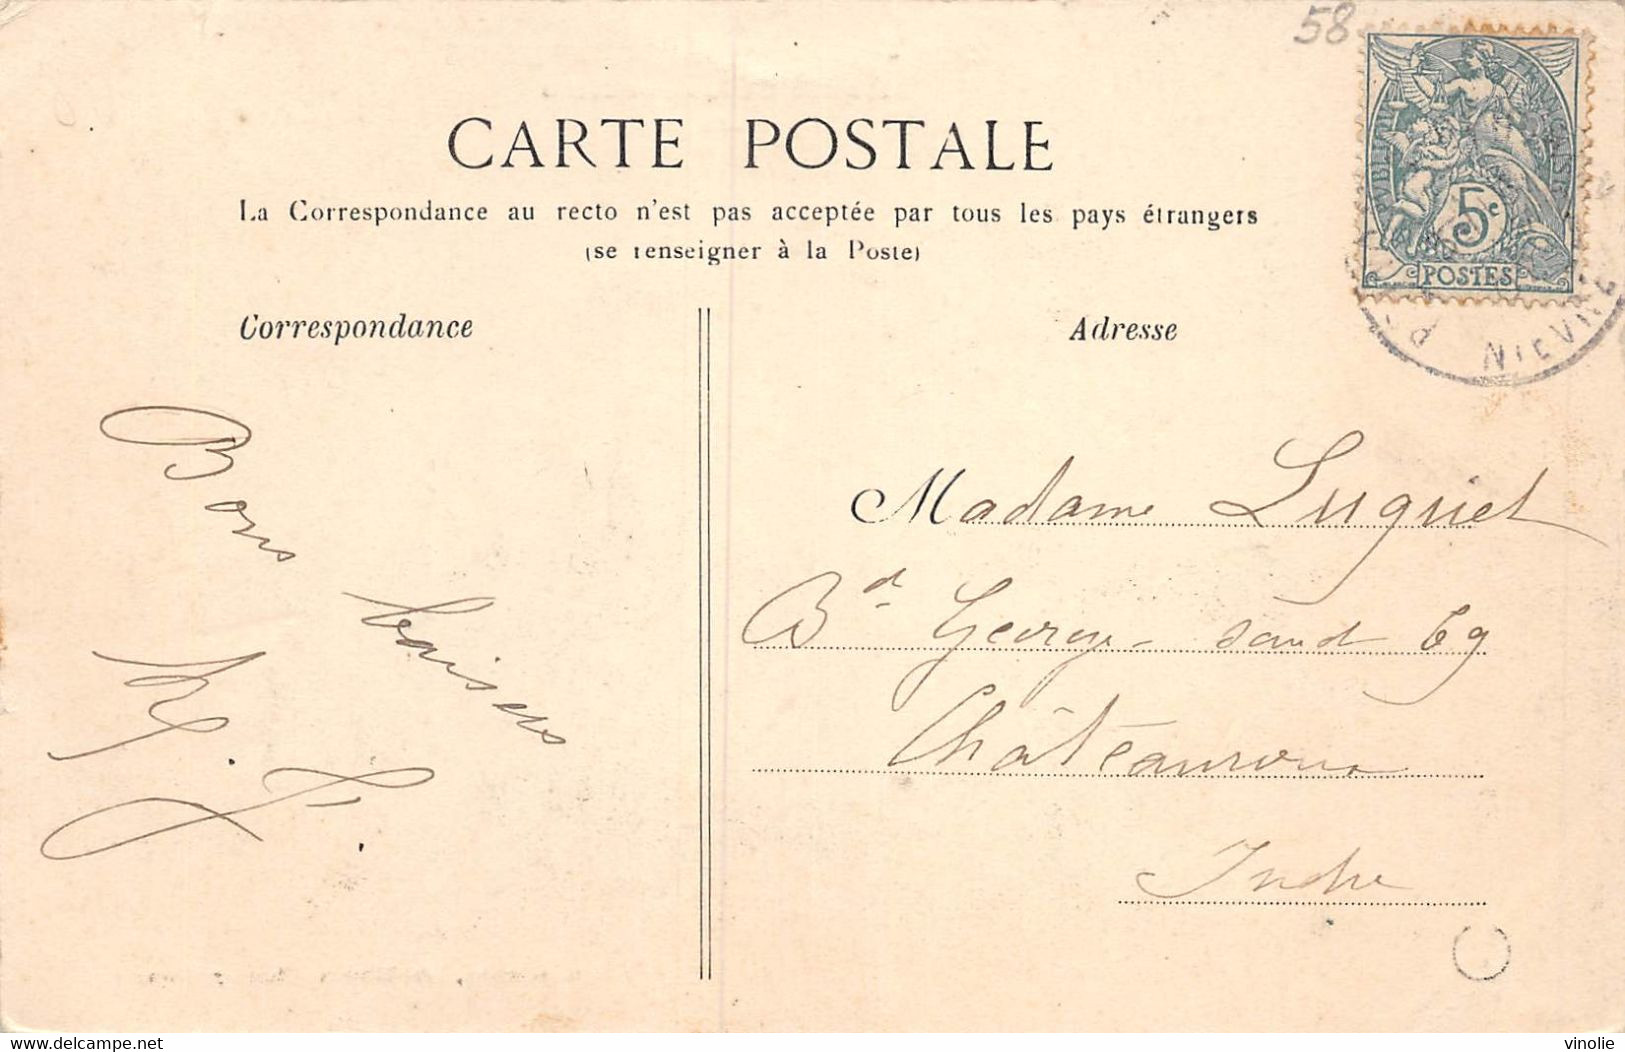 58
CARTE POSTALE
La Correspondance au recto n'est pas acceptée par tous les pays étrangers
(se renseigner à la Poste)
Correspondance
Adresse
REPUBLIQUE FRANÇAISE
5c
POSTES
NIEVRE
Bons baisers
Madame Luguet
Bd George Sand 69
Châteauroux
Indre
delcampe.net
vinolie